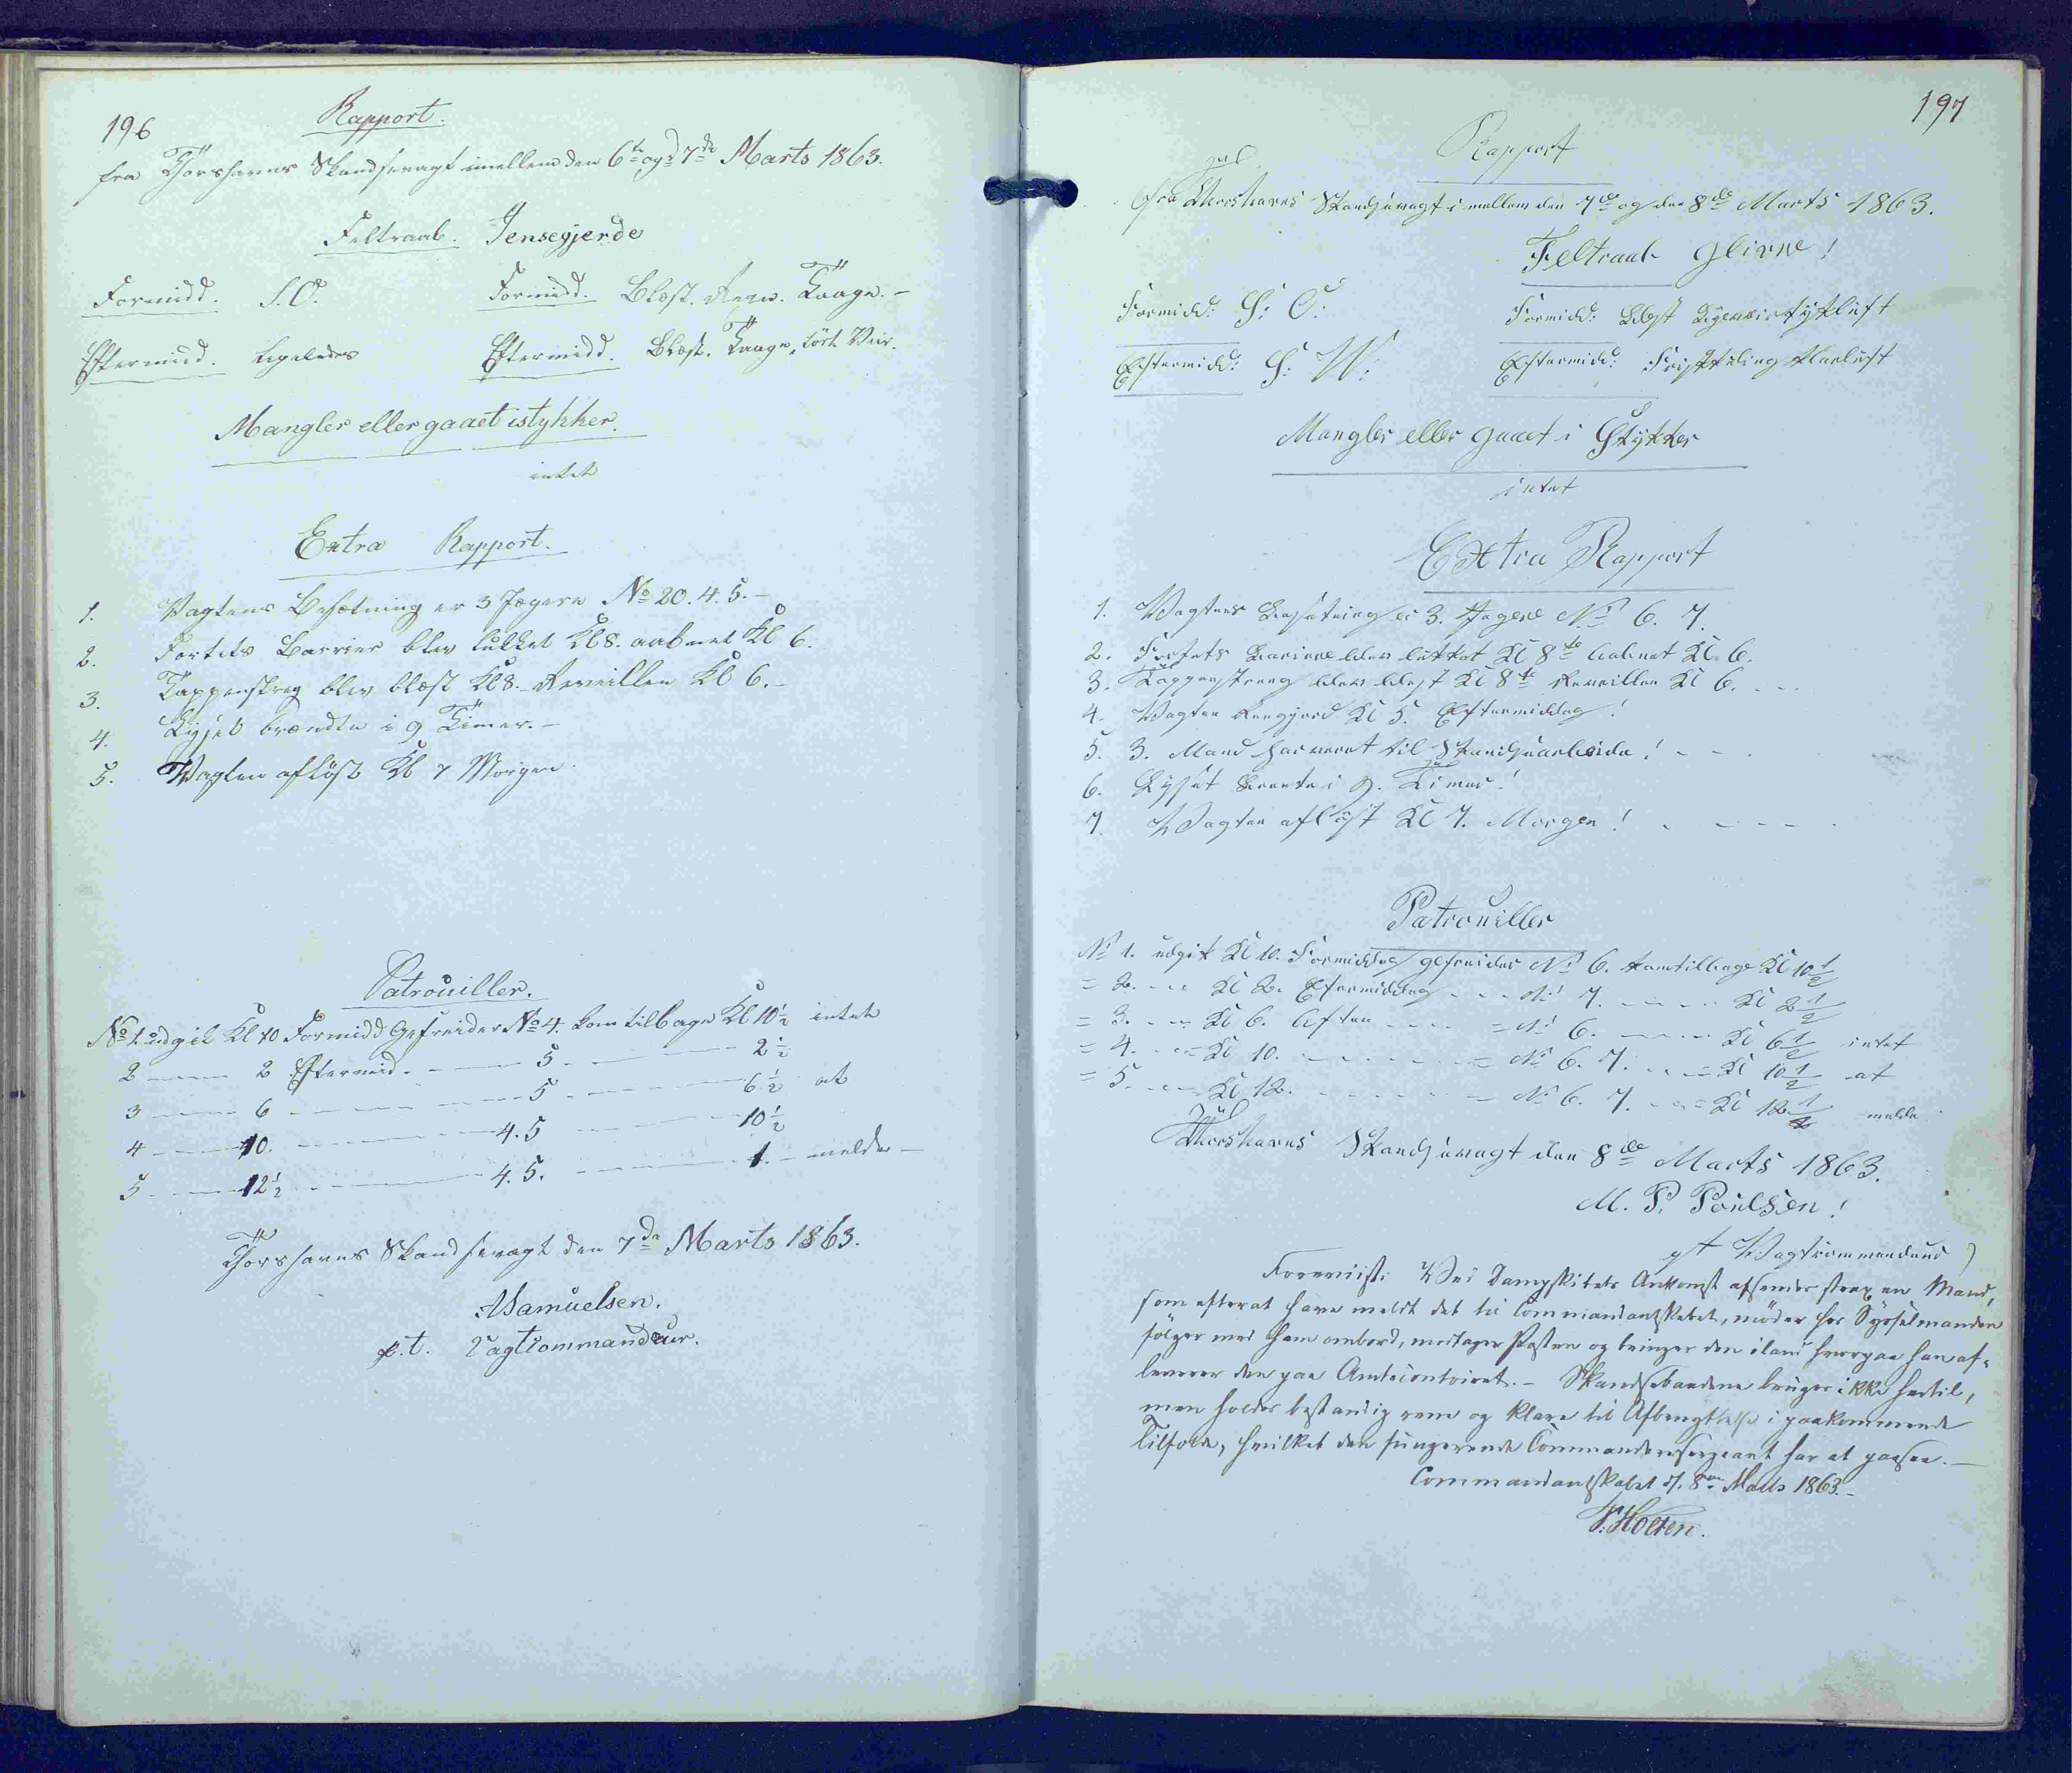 196
Rapport.
fra Thorshavns Skandsevagt imellem den 6te og 7de Marts 1863.
Feltraab. Jensegjerde
Formidd. S.O. Formidd. Blæst. Regn. Taage. -
Eftermidd. Ligeledes Eftermidd. Blæst. Taage, tört Veir.
Mangler eller gaaet istykker.
intet
Extra Rapport.
1. Vagtens Besætning er 3 Jægere No 20. 4. 5. -
2. Fortets Barrier blev lukket Kl 8. aabnet Kl 6.
3. Tappenstreg blev blæst Kl 8. Reveillen Kl 6. -
4. Lyset brændte i 9 Timer. -
5. Vagten aflöst Kl 7 Morgen.
Patrouiller.
No 1. udgik Kl 10 Formidd Gefreider No 4. kom tilbage Kl 10½ intet
2 2 Eftermid. 5 2½
3 6 5 6½ at
4 10. 4. 5 10½
5 12½ 4. 5. 1. melde
Thorshavns Skandsevagt den 7de Marts 1863.
Samuelsen.
p.t. Vagtcommandeur.
197
Rapport
fra Thorshavns Skandsevagt i mellem den 7de og den 8de Marts 1863.
Feltraab
Formidd: S: O: Formidd:
Eftermidd: S: W: Eftermidd: klarluft
Mangler eller gaaet i Stykker
intet
Extra Rapport
1. Vagtens Besætning er 3. Jægere No 6. 7.
2. Fortets Bariere blev lukket Kl 8te Aabnet Kl. 6.
3. Tappenstreeg blev blest Kl 8te Reveillen Kl 6.
4. Vagten Rengjord Kl 5. Eftermiddag!
5. 3. Mand har veret til Skandsearbeide!
6. Lyset brente i 9. Timer!
7. Vagten aflöst Kl 7. Morgen!
Patrouiller
No 1. udgik Kl 10. Formiddag gefreider No 6. kom tilbage Kl 10½
= 2. Kl 2. Eftermiddag No 7. Kl 2½
= 3. Kl 6. Aften = No 6. Kl 6½ intet
= 4. = Kl 10. = No 6. 7. = Kl 10½ at
= 5. = Kl 12. = No 6. 7. = Kl 12½ melde
Thorshavns Skandsevagt den 8de Marts 1863.
M. P. Poulsen!
pt Vagtcommandeur
Foreviist: Ved Dampskibets Ankomst afsendes strax en Mand,
som efterat have meldt det til Commandantskabet, møder hos Sysselmanden
følger med ham ombord, modtager Posten og bringer den iland hvorpaa han af-
leverer den paa Amtscontoiret. - Skandsebaadene bruges ikke hertil,
men holdes bestandig rene og klare til Afbenyttelse i paakommende
Tilfælde, hvilket den fungerende Commandeersergeant har at paasee. -
Commandantskabet d. 8de Marts 1863. -
Holten.